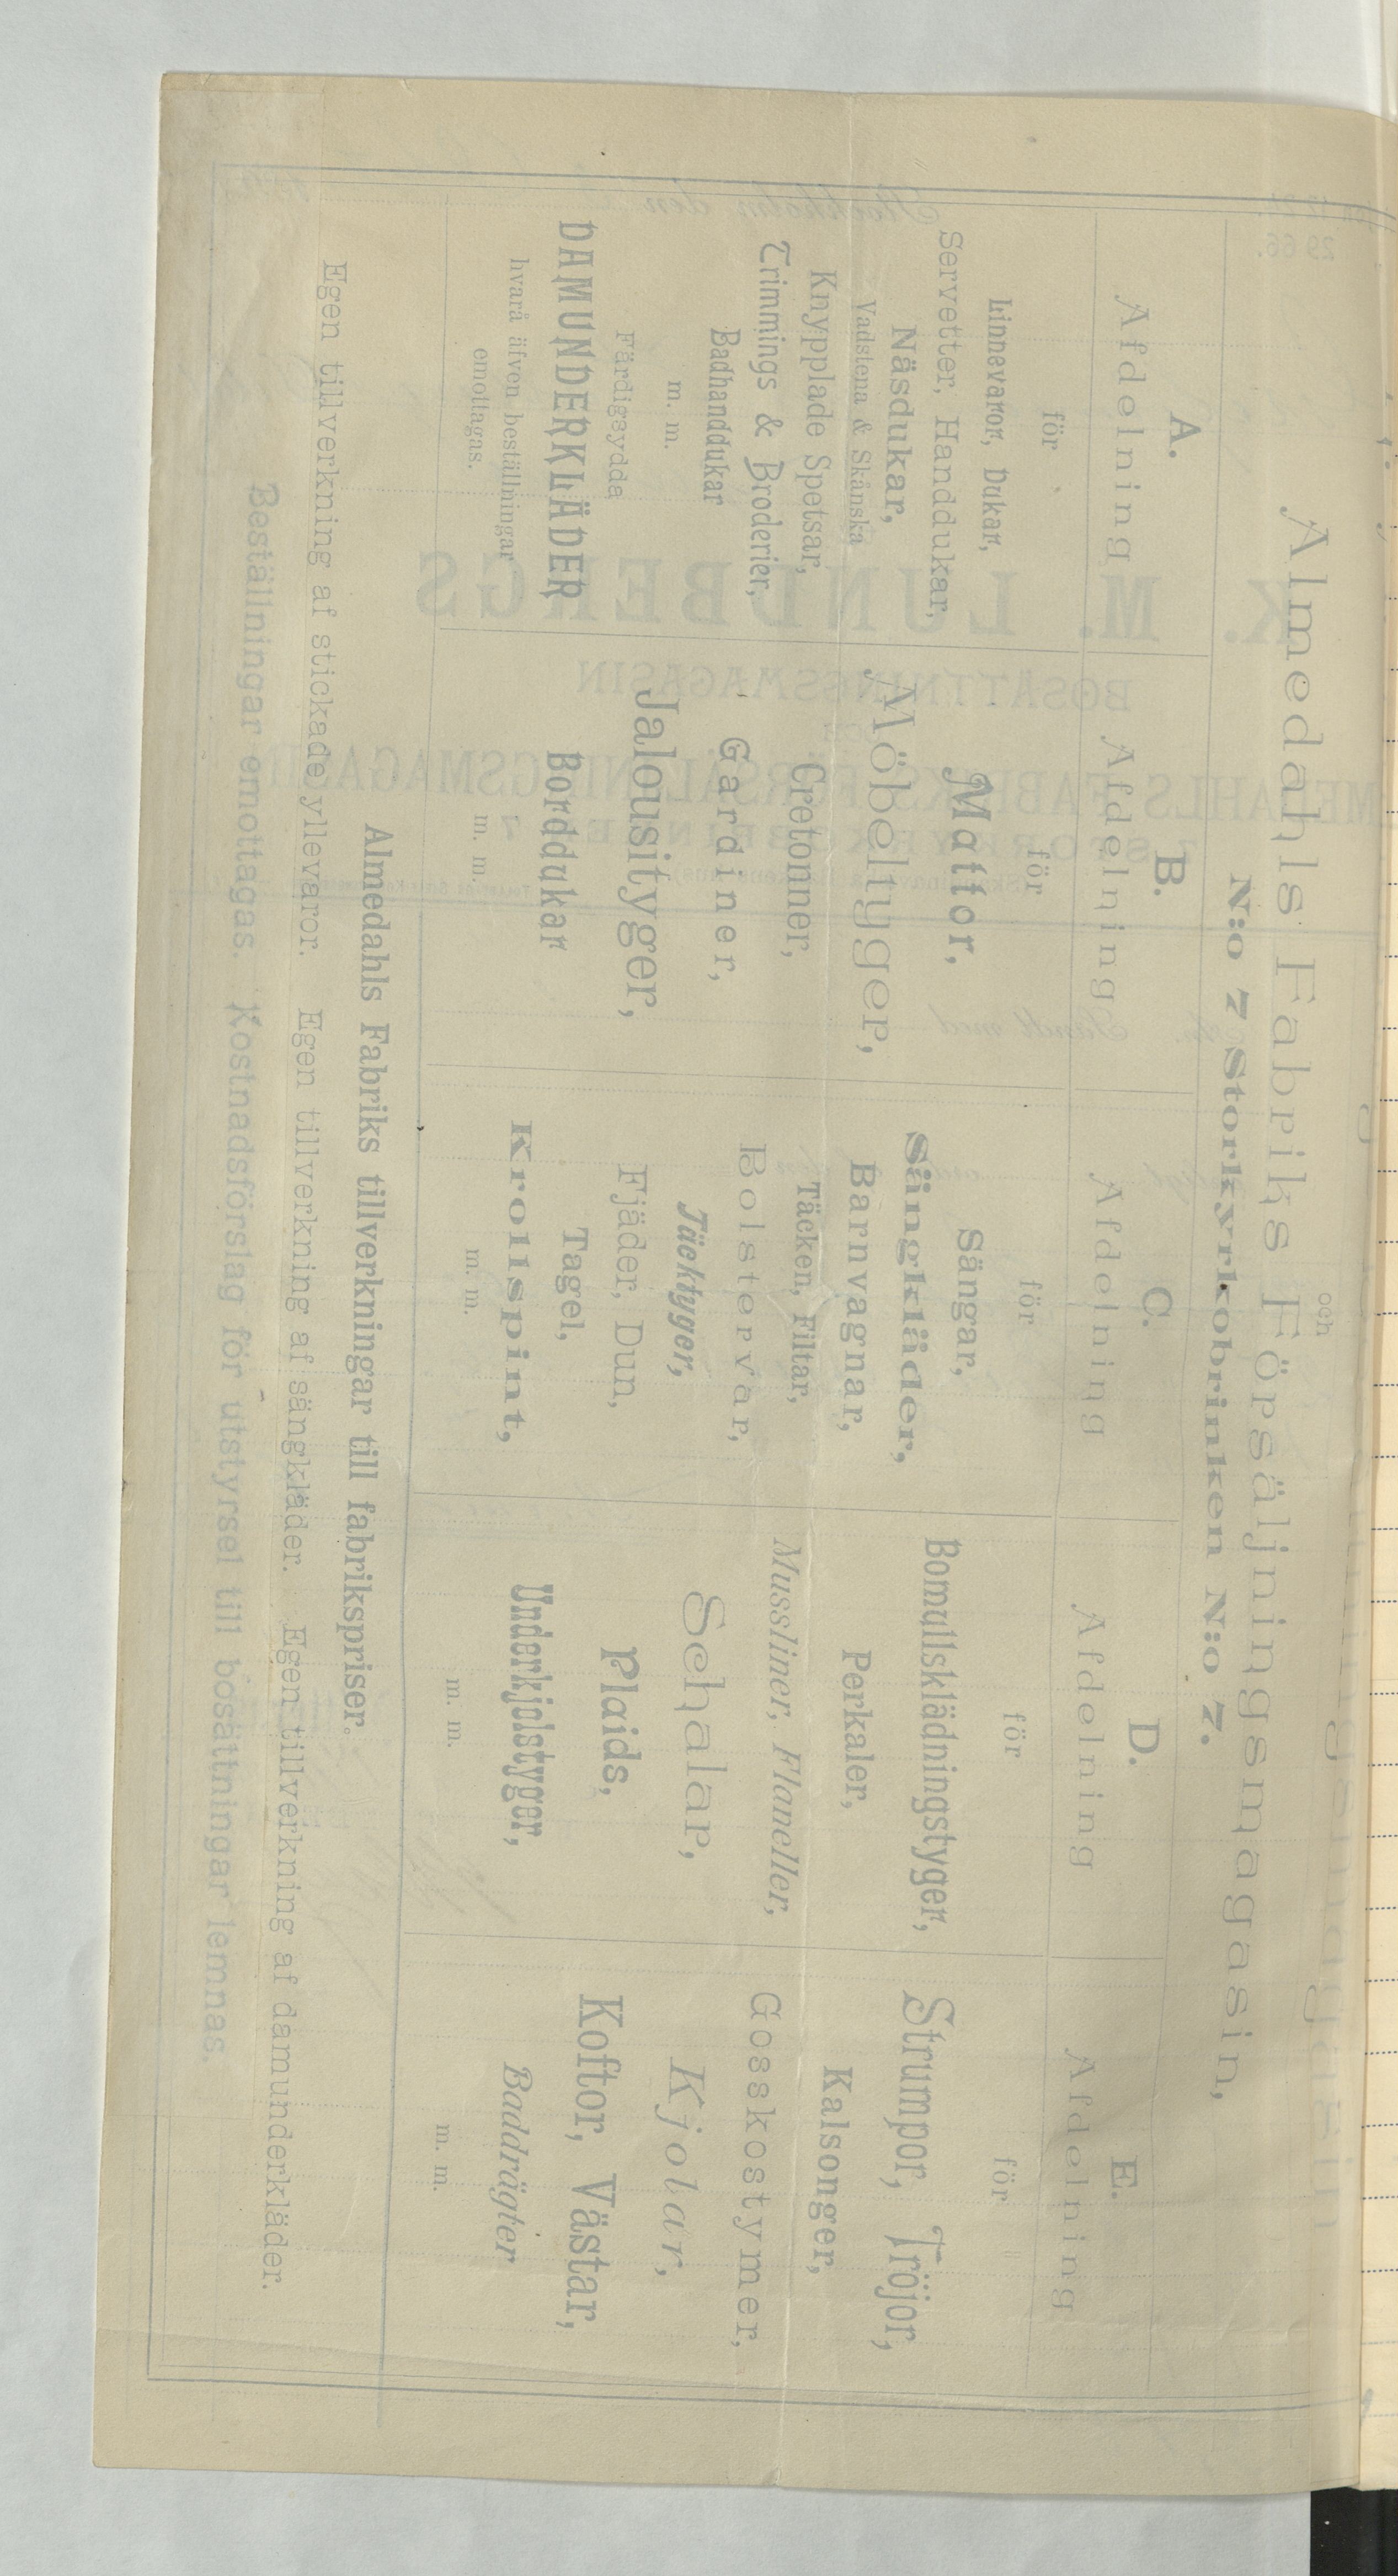 och
Almedahls Fabriks Försäljningsmagasin,
N:o 7 Storkyrkobrinken N:o 7.
A.
Afdelning
för
Linnevaror, Dukar,
Servetter, Handdukar,
Näsdukar,
Vadstena & Skånska
Knypplade Spetsar,
Trimmings & Broderier,
Badhanddukar
m. m.
Färdigsydda
DAMUNDERKLÄDER
hvarå äfven beställningar
emottagas.
B.
Afdelning
för
Mattor,
Möbeltyger,
Cretonner,
Gardiner,
Jalousityger,
Borddukar
m. m.
C.
Afdelning
för
Sängar,
Sängkläder,
Barnvagnar,
Täcken, Filtar,
Bolstervar,
Täcktyger,
Fjäder, Dun,
Tagel,
Krollspint,
m. m.
D.
Afdelning
för
Bomullsklädningstyger,
Perkaler,
Mussliner, Flaneller,
Schalar,
Plaids,
Underkjolstyger,
m. m.
E.
Afdelning
för
Strumpor, Tröjor,
Kalsonger,
Gosskostymer,
Kjolar,
Koftor, Västar,
Baddrägter
m. m.
Almedahls Fabriks tillverkningar till fabrikspriser.
Egen tillverkning af stickade yllevaror. Egen tillverkning af sängkläder. Egen tillverkning af damunderkläder.
Beställningar emottagas. Kostnadsförslag för utstyrsel till bosättningar lemnas.
K. M. LUNDBERGS
BOSÄTTNINGSMAGASIN
FABRIKS FÖRSÄLJNINGSMAGASIN
Stockholm den